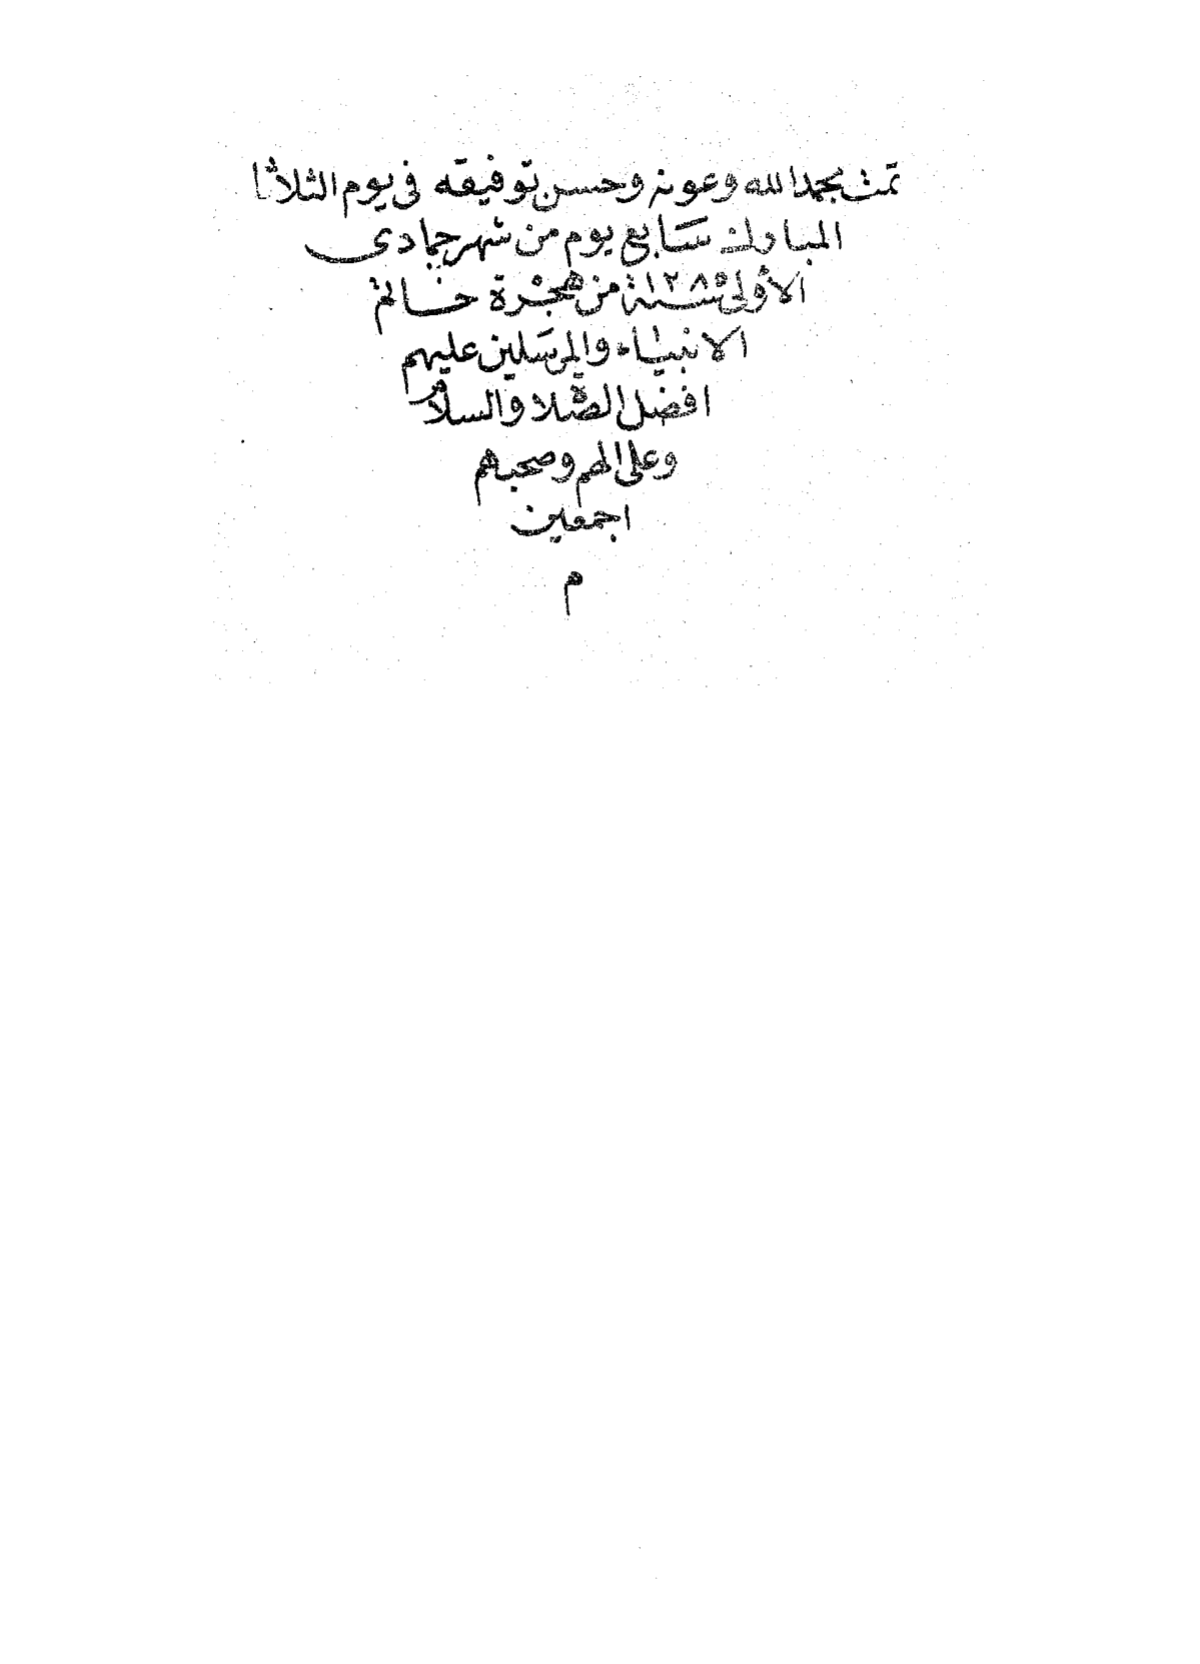 تمت بحمد الله وعونه وحسن توفيقه فى يوم الثلاثا
المبارك سابع يوم من شهر جمادى
الأولى سنة ١٢٨٥ من هجرة خاتم
الانبياء والمرسلين عليهم
افضل الصلاة والسلام
وعلى الهم وصحبهم
اجمعين
م